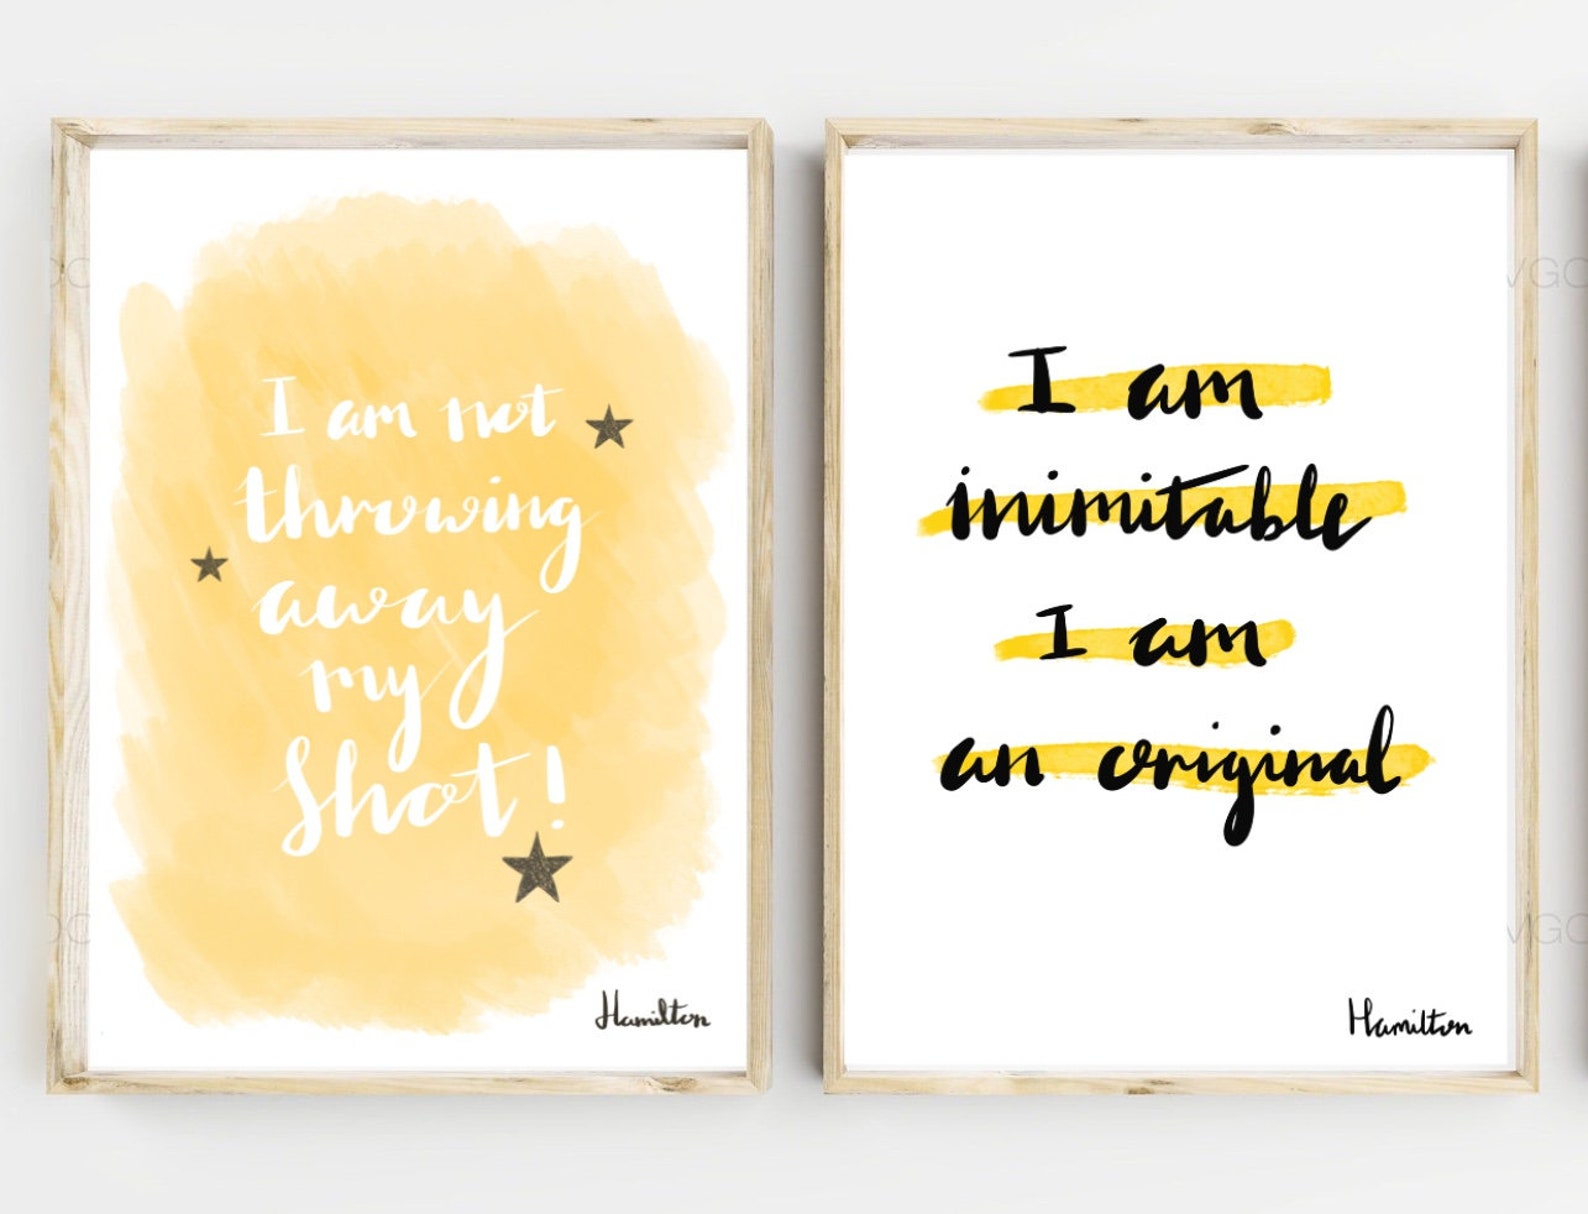 I am not
throwing
away
my
Shot!
Hamilton
I am
inimitable
I am
an original
Hamilton